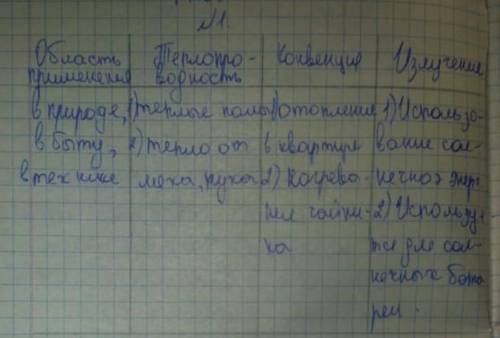 №1.
Область применения
Теплопро-
водность
Конвекция
Излучение
в природе,
в быту,
в технике
1) теплые полы
2) тепло от
меха, пуха
1) отопление
в квартире
2) Нагрева-
ние чайни-
ка
1) Использо-
вание сол-
нечной энерг
2) Использує
тся для сол-
нечных бата
реи.